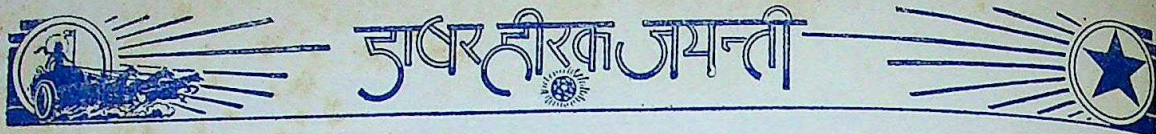 डाबर हीरक जयन्ती